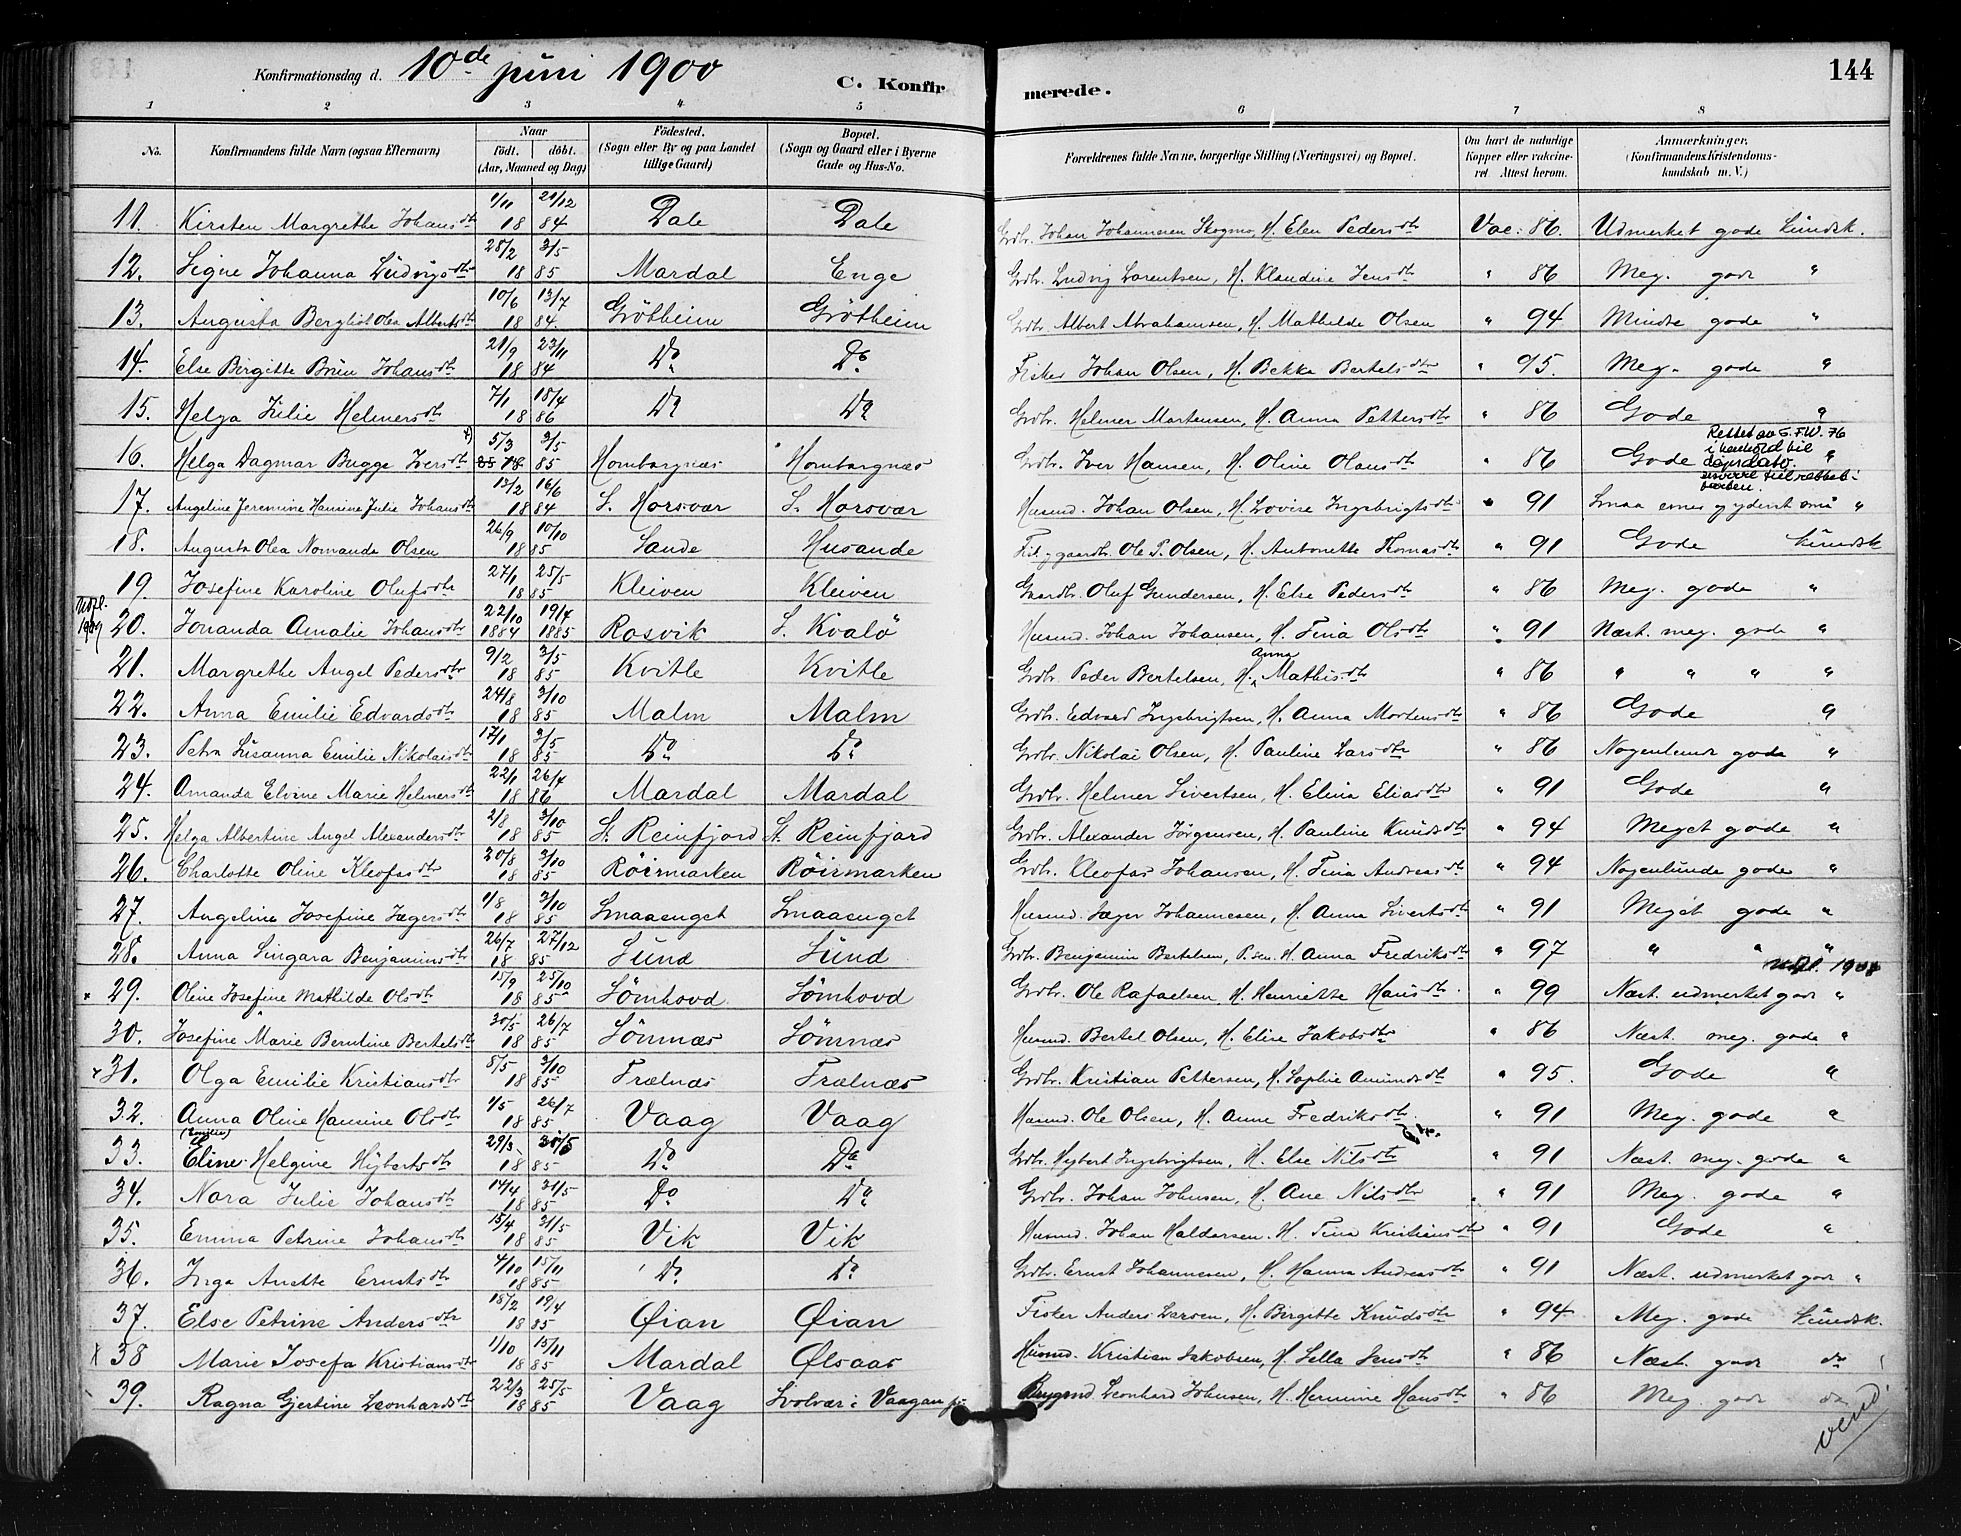 144
Konfirmationsdag d. 10de juni 1900 C. Konfirmerede.
1 2 3 4 5 6 7 8
No. Konfirmandens fulde Navn (ogsaa Efternavn) Naar födt. döbt. (Aar, Maaned og Dag) Födested. (Sogn eller By og paa Landet tillige Gaard) Bopæl. (Sogn og Gaard eller i Byerne Gade og Hus-No. Forældrenes fulde Navne, borgerlige Stilling (Næringsvei) og Bopæl. Om havt de naturlige Kopper eller vaccineret Attest herom. Anmerkninger. (Konfirmandens Kristendomskundskab m. V.)
11. Kirsten Margrethe Johansdtr 1/11 21/12 1884 Dale Dale Grdbr. Johan Johannesen Skogmo, H. Elen Pedersdtr Vac: 86. Udmerket gode kundsk.
12. Signe Johanna Ludvigsdtr 28/2 3/5 1885 Mardal Enge Grdbr. Ludvig Larentsen, H. Klaudine Jensdtr " 86 Meg. gode "
13. Augusta Bergliot Olea Albertsdtr 10/6 13/7 1884. Grötheim Grötheim Grdbr. Albert Abrahamsen, H. Mathilde Olsen " 94 Mindre gode "
14. Else Birgitte Brun Johansdtr 21/9 23/11 1884 Do Do Fisker Johan Olsen, H. Bekka Bertelsdtr " 95. Meg. gode "
15. Helga Julie Helmersdtr 7/1 18/4 1886 Do Do Grdbr. Helmer Martensen, H. Anna Pettersdtr " 86 Gode "
16. Helga Dagmar Bugge Iversdtr x) 5/3 3/5 85 18 85 Hombornæs Hombornæs Grdbr. Iver Hansen, H. Oline Olausdtr " 86 Gode "
Rettet av S.FW. 76
i henhold til
dåpsdato.
17. Angeline Jeremine Hansine Julie Johansdtr 13/2 16/6 1884 S. Horsvær S. Horsvær Husmd. Johan Olsen, H. Lovise Ingebrigtsdtr " 91 Smaa evner, yderst små "
18. Augusta Olea Nomanda Olsen 26/9 10/10 1885 Sande Husande Ole P. Olsen, H. Antonette Thomasdtr " 91 Gode kundsk
19 Josefine Karoline Olufsdtr 27/1 25/5 1885 Kleiven Kleiven Gaardbr. Oluf Gundersen, H. Else Pedersdtr " 86 Meg. gode "
20. Jonanda Amalie Johansdtr 22/10 1884 19/4 1885 Rosvik S. Kvalö Husmd. Johan Johansen, H. Tina Olsdtr " 91 Næst. meg. gode "
21. Margrethe Angel Pedersdtr 9/2 3/5 1885 Kvitle Kvitle Grdbr. Peder Bertelsen, H. Anna Mathisdtr " 86 " " " "
22. Anna Emilie Edvardsdtr 24/8 3/10 1885. Malm Malm Grdbr. Edvard Ingebrigtsen, H. Anna Mortensdtr " 86 Gode "
23. Petra Susanna Emilie Nikolaisdtr 17/1 3/5 1885. Do Do Grdbr. Nikolai Olsen, H. Pauline Larsdtr " 86 Nogenlunde gode "
24. Amanda Elvine Marie Helmersdtr 22/1 26/4 1886 Mardal Mardal Grdbr. Helmer Sivertsen, H. Elina Eliasdtr " 91 Gode "
25. Helga Albertine Angel Alexandersdtr 2/8 3/10 1885. St. Reinfjord St. Reinfjord Grdbr. Alexander Jörgensen, H. Pauline Knudsdtr " 94 Meget gode "
26. Charlotte Oline Kleofasdtr 20/8 3/10 1885. Röirmarken Röirmarken Grdbr. Kleofas Johansen, H. Tina Andreasdtr " 94 Nogenlunde gode "
27. Angeline Josefine Jægersdtr 1/8 3/10 1885. Smaasenget Smaasenget Husmd. Jæger Johannesen, H. Anna Sivertsdtr " 91 Meget gode "
28. Anna Singara Benjaminsdtr 26/7 27/12 1885. Sund Sund Grdbr. Benjamin Bertelsen, H. Anna Fredriksdtr " 97 " " "
x 29. Oline Josefine Mathilde Olsdtr 15/9 25/10 1885. Sömhovd Sömhovd Grdbr. Ole Rafaelsen, H. Henriette Hansdtr " 99 Næst. udmerket gode "
30. Josefine Marie Berntine Bertelsdtr 30/5 26/7 1885. Sömnæs Sömnæs Husmd. Bertel Olsen, H. Elise Jakobsdtr " 86 Næst. meg. gode "
x 31. Olga Emilie Kristiansdtr 8/5 3/10 1885. Trælnæs Trælnæs Grdbr. Kristian Pettersen, H. Sophie Amundsdtr " 95. Gode "
32. Anna Oline Hansine Olsdtr 1/5 26/7 1885. Vaag Vaag Husmd. Ole Olsen, H. Anne Fredriksdtr. " 91 Meg. gode "
33. Eline Helgine Hybertsdtr 29/3 1885. Do Do Grdbr. Hybert Ingebrigtsen, H. Else Nilsdtr " 91 Næst. meg. gode "
34. Nora Julie Johansdtr 14/4 31/5 1885. Do Do Grdbr. Johan Johnsen, H. Ane Nilsdtr " 91 Meg. gode "
35. Emma Petrine Johansdtr 15/4 31/5 1885. Vik Vik Husmd. Johan Haldorsen. H. Tina Kristiansdtr " 91 Gode "
36. Inga Anette Ernstsdtr 4/10 15/11 1885. Do Do Grdbr. Ernst Johannesen, H. Hanna Andreasdtr " 91 Næst. udmerket gode "
37. Else Petrine Andersdtr 18/2 19/4 1885 Øian Øian Fisker Anders Larsen, H. Birgitte Knudsdtr " 94 Meg. gode kundsk.
x 38 Marie Josefa Kristiansdtr 1/10 15/11 1885 Mardal Ølsaas Husmd. Kristian Jakobsen, H. Sella Jensdtr " 86 Næst. gode do
39. Ragna Gjertine Leonhardsdtr 22/3 25/5 1885 Vaag Svolvær i Vaagan Bygmd. Leonhard Johnsen, H. Hermine Hansdtr " 86 Meg. gode do
vend!